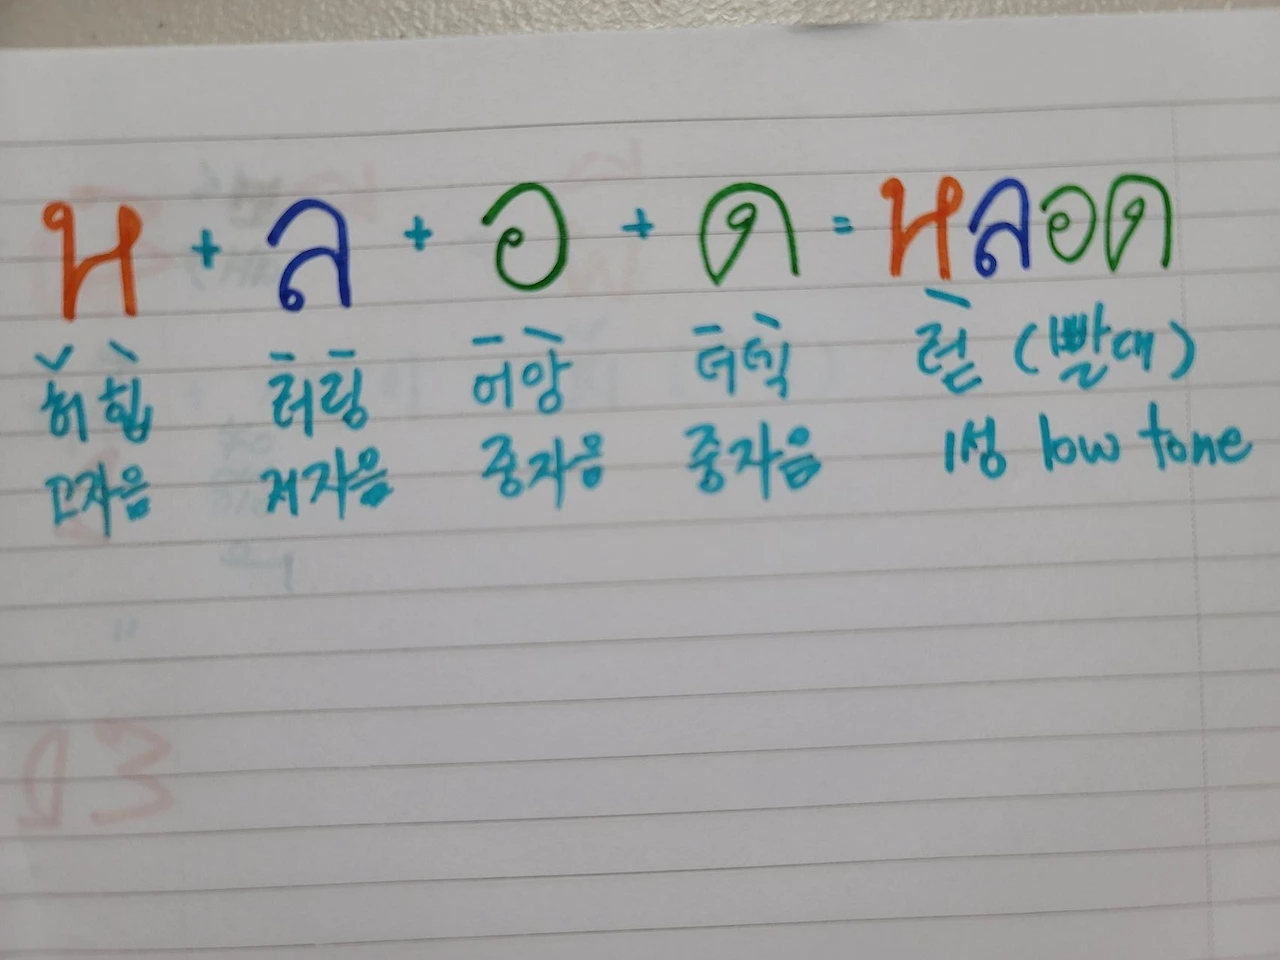 ห + ล + อ + ด = หลอด
허힙 러링 어앙 더덱 럳 (빨대)
고자음 저자음 중자음 중자음 1성 low tone